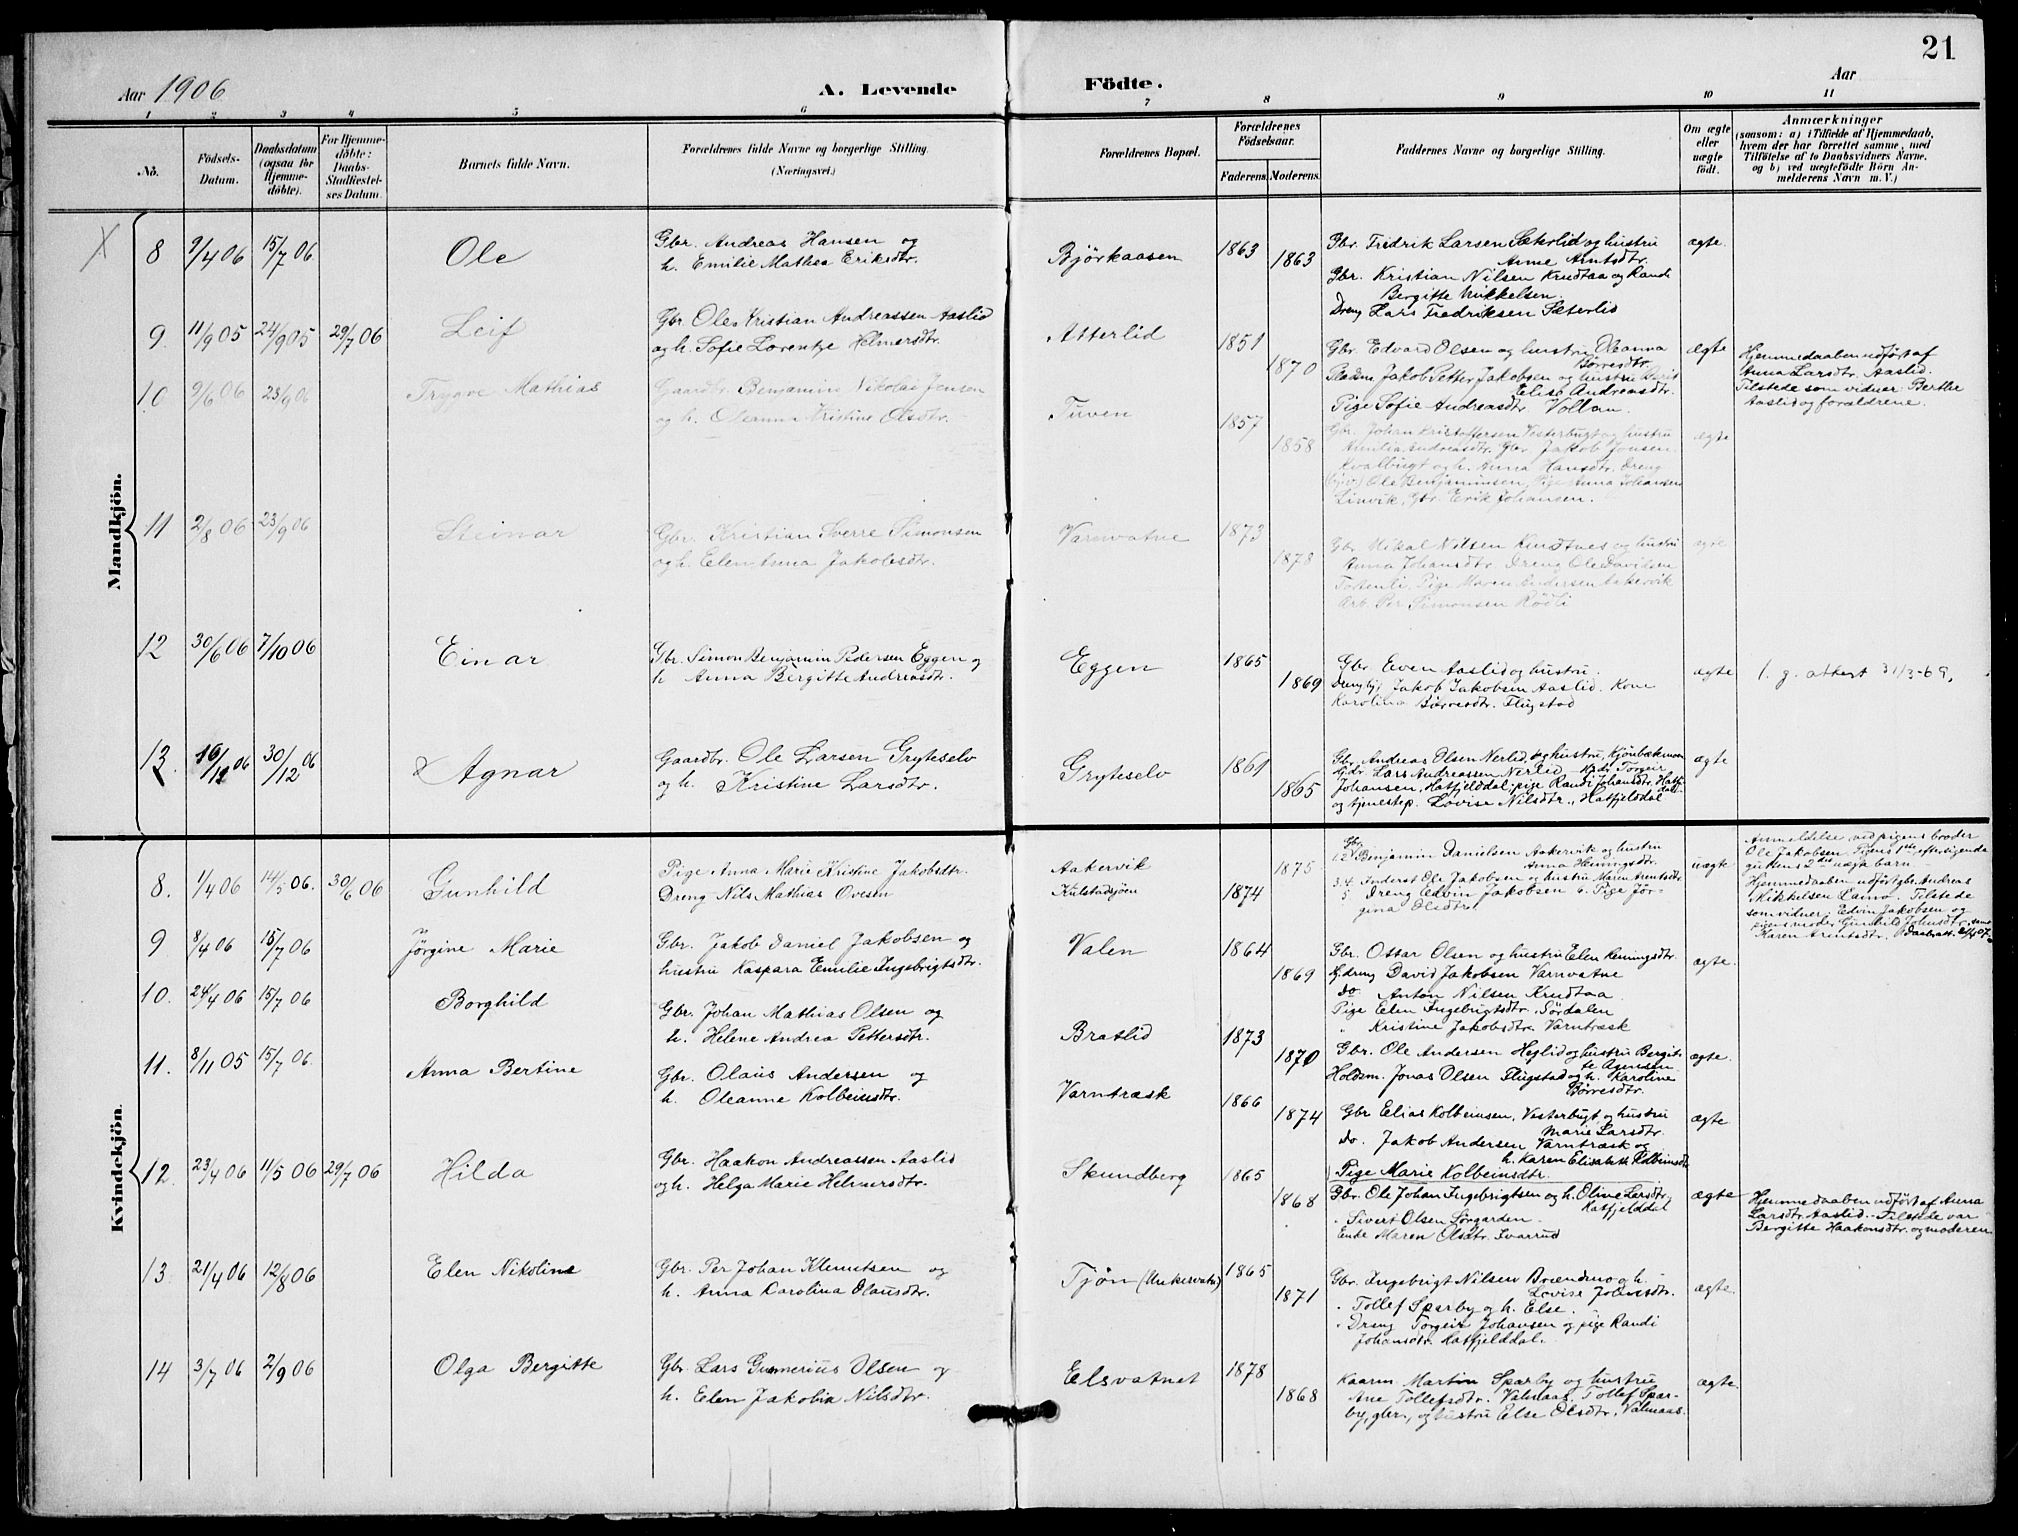 21
Aar 1906
A. Levende Födte.
Aar
1 2 3 4 5 6 7 8 9 10 11
No.
Födsels-Datum.
Daabsdatum (ogsaa for Hjemmedöbte).
For Hjemmedöbte: Daabs-Stadfæstelses Datum.
Barnets fulde Navn.
Forældrenes fulde Navne og borgerlige Stilling. (Næringsvei.)
Forældrenes Bopæl.
Forældrenes Födselsaar.
Faderens. Moderens.
Faddernes Navne og borgerlige Stilling.
Om ægte eller uægte födt.
Anmærkninger
(saasom: a) i Tilfælde af Hjemmedaab, hvem der har forrettet samme, med Tilföielse af to Daabsvidners Navne, og b) ved uægtefödte Börn Anmelderens Navn m. V.)
Mandkjön.
X 8 9/4 06 15/7 06 Ole
Gbr. Andreas Hansen og
h. Emilie Mathea Eriksdtr.
Bjørkaasen 1863 1863
Gbr. Fredrik Larsen Sæterlid og hustru
Anne Arntsdtr.
Gbr. Kristian Nilsen Krudtaa og Randi
Bergitte Mikkelsen.
Dreng Lars Fredriksen Sæterlid
ægte
9 11/9 05 24/9 05 29/7 06 Leif
Gbr. Ole Kristian Andreassen Aaslid
og h. Sofie Lorentze Helmersdtr.
Atterlid 1851 1870
Gbr. Edvard Olsen og hustru Oleanna
Børresdtr.
Pladsm. Jakob Petter Jakobsen og hustru Berit
Elise Andreasdtr.
Pige Sofie Andreasdtr. Vollan.
ægte
Hjemmedaaben udført af
Anna Larsdtr. Aaslid.
Tilstede som vidner: Berthe
Aaslid og forældrene.
10 9/6 06 23/9 06 Trygve Mathias
Gaardbr. Benjamin Nikolai Jensen
og h. Oleanna Kristine Olsdtr.
Tuven 1857 1858
Gbr. Johan Kristoffersen Vesterbugt og hustru
Amilia Andreasdtr. Gbr. Jakob Jonsen
Kvalbugt og h. Anna Hansdtr. Dreng
Ole Benjaminsen, Pige Anna Johansen
Linvik, Gbr. Erik Johansen.
ægte
11 2/8 06 23/9 06 Steinar
Gbr. Kristian Sverre Simonsen
og h. Elen Anna Jakobsdtr.
Varnvatne 1873 1878
Gbr. Mikal Nilsen Krudtnes og hustru
Anna Johansdtr. Dreng Ole Davidsen
Toftenli, Pige Maren Andersen
Arb. Per Simonsen Rødli
ægte
12 30/6 06 7/10 06 Einar
Gbr. Simon Benjamin Pedersen Eggen og
h. Anna Bergitte Andreasdtr.
Eggen 1865 1869
Gbr. Even Aaslid og hustru.
Jakob Jakobsen Aaslid. Kone
Karolina Børresdtr. Flugstad
ægte
1. g. attest 31/3-69.
13. 16/12 06 30/12 06 Agnar
Gaardbr. Ole Larsen Gryteselv
og h. Kristine Larsdtr.
Gryteselv 1861 1865
Gbr. Andreas Olsen Nerlid, og hustru, Kjønbækmoen
Gbr. Lars Andreassen Nerlid Torgeir
Johansen, Hatfjelddal, pige Randi Johansdtr. Hatfjelddal
og tjenestep. Lovise Nilsdtr., Hatfjelddal
ægte
Kvindekjön.
8. 1/4 06 14/5 06. 30/6 06 Gunhild
Pige Anna Marie Kristine Jakobsdtr.
Dreng Nils Mathias Ovesen
Aakervik
Kulstadsjøen
1875 1874
Gbr.
1 2 Benjamin Danielsen Aakervik og hustru
Anna Henningsdtr.
3. 4. Inderst Ole Jakobsen og hustru Maren Arntsdtr.
5 Dreng Edvin Jakobsen 6. Pige Jørgina Olsdtr.
uægte
Anmeldelse ved pigens broder
Ole Jakobsen. Pigens 1ste, efter sigende
guttens 2det uægte barn.
Hjemmedaaben udført gbr. Andreas
Mikkelsen Lamo. Tilstede
som vidner: Edvin Jakobsen og
pigens moder Gunhild Johnsdtr., samt
Karen Arntsdtr.
9 8/4 06 15/7 06 Jørgine Marie
Gbr. Jakob Daniel Jakobsen og
hustru Kaspara Emilie Ingebrigtsdtr.
Valen 1864 1869
Gbr. Ottar Olsen og hustru Elen Henningsdtr.
Gdreng David Jakobsen Varnvatne
Do. Anton Nilsen Krudtaa
Pige Elen Ingebrigtsdtr. Sördalen
" Kristine Jakobsdtr. Varntræsk
ægte.
10. 24/4 06 15/7 06 Borghild
Gbr. Johan Mathias Olsen og
h. Helene Andrea Pettersdtr.
Bratlid 1873 1870
Gbr. Ole Andersen Heglid og hustru Bergitte Agensen
Holdsm. Jonas Olsen Flugstad og h. Karoline
Børresdtr.
ægte.
11. 8/11 05 15/7 06. Anna Bertine
Gbr. Olaus Andersen og
h. Oleanne Kolbeinsdtr.
Varntræsk 1866 1874
Gbr Elias Kolbeinsen, Vesterbugt og hustru
Marie Larsdtr.
Do. Jakob Andersen Varntræsk og
h. Karen Elisabeth Kolbeinsdtr.
Pige Marie Kolbeinsdtr.
ægte
12. 23/4 06 11/5 06 29/7 06 Hilda
Gbr. Haakon Andreassen Aaslid
og h. Helga Marie Helmersdtr.
Skundberg 1865 1868
Gbr. Ole Johan Ingebrigtsen og h. Oline Larsdtr.
Hatfjelddal
" Sivert Olsen Sørgarden.
Enke Maren Olsdtr. Svarrud
ægte
Hjemmedaaben udført af Anna
Larsdtr. Aaslid. - Tilstede var
Bergitte Haakonsdtr. og moderen
13. 21/4 06 12/8 06 Elen Nikoline
Gbr. Per Johan Klemetsen og
h. Anna Karolina Olausdtr.
Tjøn (Unkervatn) 1865 1871
Gbr. Ingebrigt Nilsen Brændmo og h.
Lovise Johnsdtr.
" Tollef Sparby og h. Else.
" Dreng Torgeir Johansen og pige Randi
Johansdtr. Hatfjelddal.
ægte.
14 3/7 06 2/9 06 Olga Bergitte
Gbr. Lars Gunnerius Olsen og
h. Elen Jakobia Nilsdtr.
Elsvatnet 1878 1868
Kaarm Martin Sparby og hustru
Ane Tollefsdtr. Valmaas. Tollef Sparby, gbr., og hustru Else Olsdtr. Valmaas.
ægte.